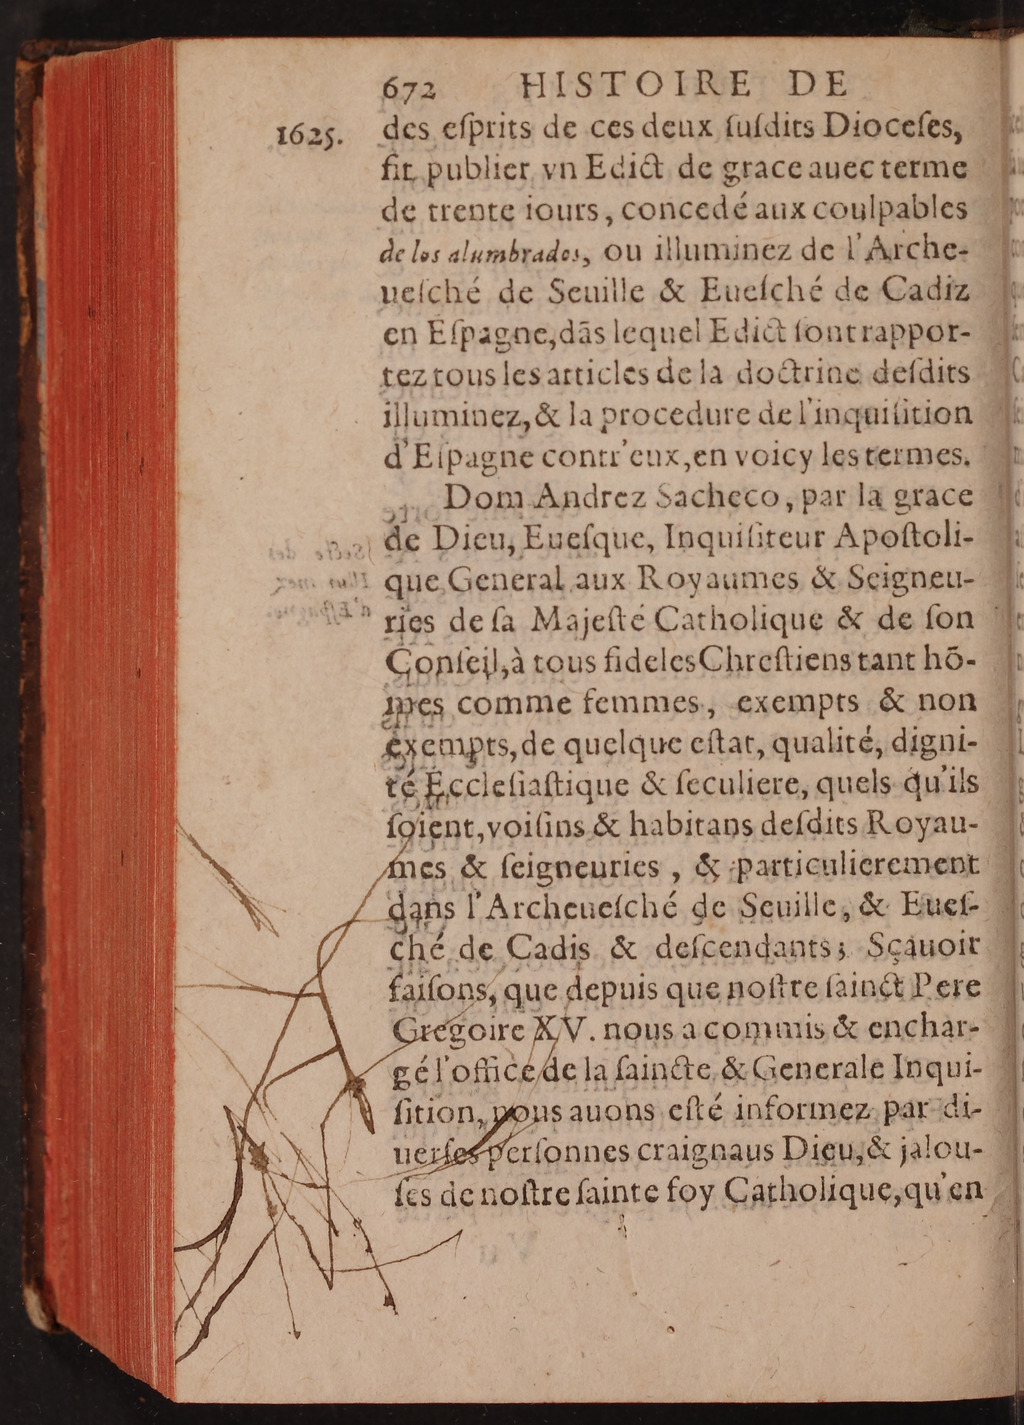 672 HISTOIRE DE
1625. des eſprits de ces deux ſuſdits Dioceſes,
fit publier vn Edict de grace auec terme
de trente iours, concedé aux coulpables
de los alumbrados, ou illuminez de l'Arche-
ueſché de Seuille & Eueſché de Cadiz
en Eſpagne, dãs lequel Edict ſont rappor-
tez tous les articles de la doctrine deſdits
illuminez, & la procedure de l'inquiſition
d'Eſpagne contr'eux, en voicy les termes.
Dom Andrez Sacheco, par la grace
de Dieu, Eueſque, Inquiſiteur Apoſtoli-
que General aux Royaumes & Seigneu-
ries de ſa Majeſté Catholique & de ſon
Conſeil, à tous fideles Chreſtiens tant hõ-
mes comme femmes, exempts & non
exempts, de quelque eſtat, qualité, digni-
té Eccleſiaſtique & ſeculiere, quels qu'ils
ſoient, voiſins & habitans deſdits Royau-
mes & ſeigneuries, & particulierement
dans l'Archeueſché de Seuille, & Eueſ-
ché de Cadis & deſcendants; Sçauoir
faiſons, que depuis que noſtre ſainct Pere
Gregoire XV. nous a commis & enchar-
gé l'office de la ſaincte & Generale Inqui-
ſition, nous auons eſté informez par di-
uerſes perſonnes craignaus Dieu, & jalou-
ſes de noſtre ſainte foy Catholique, qu'en